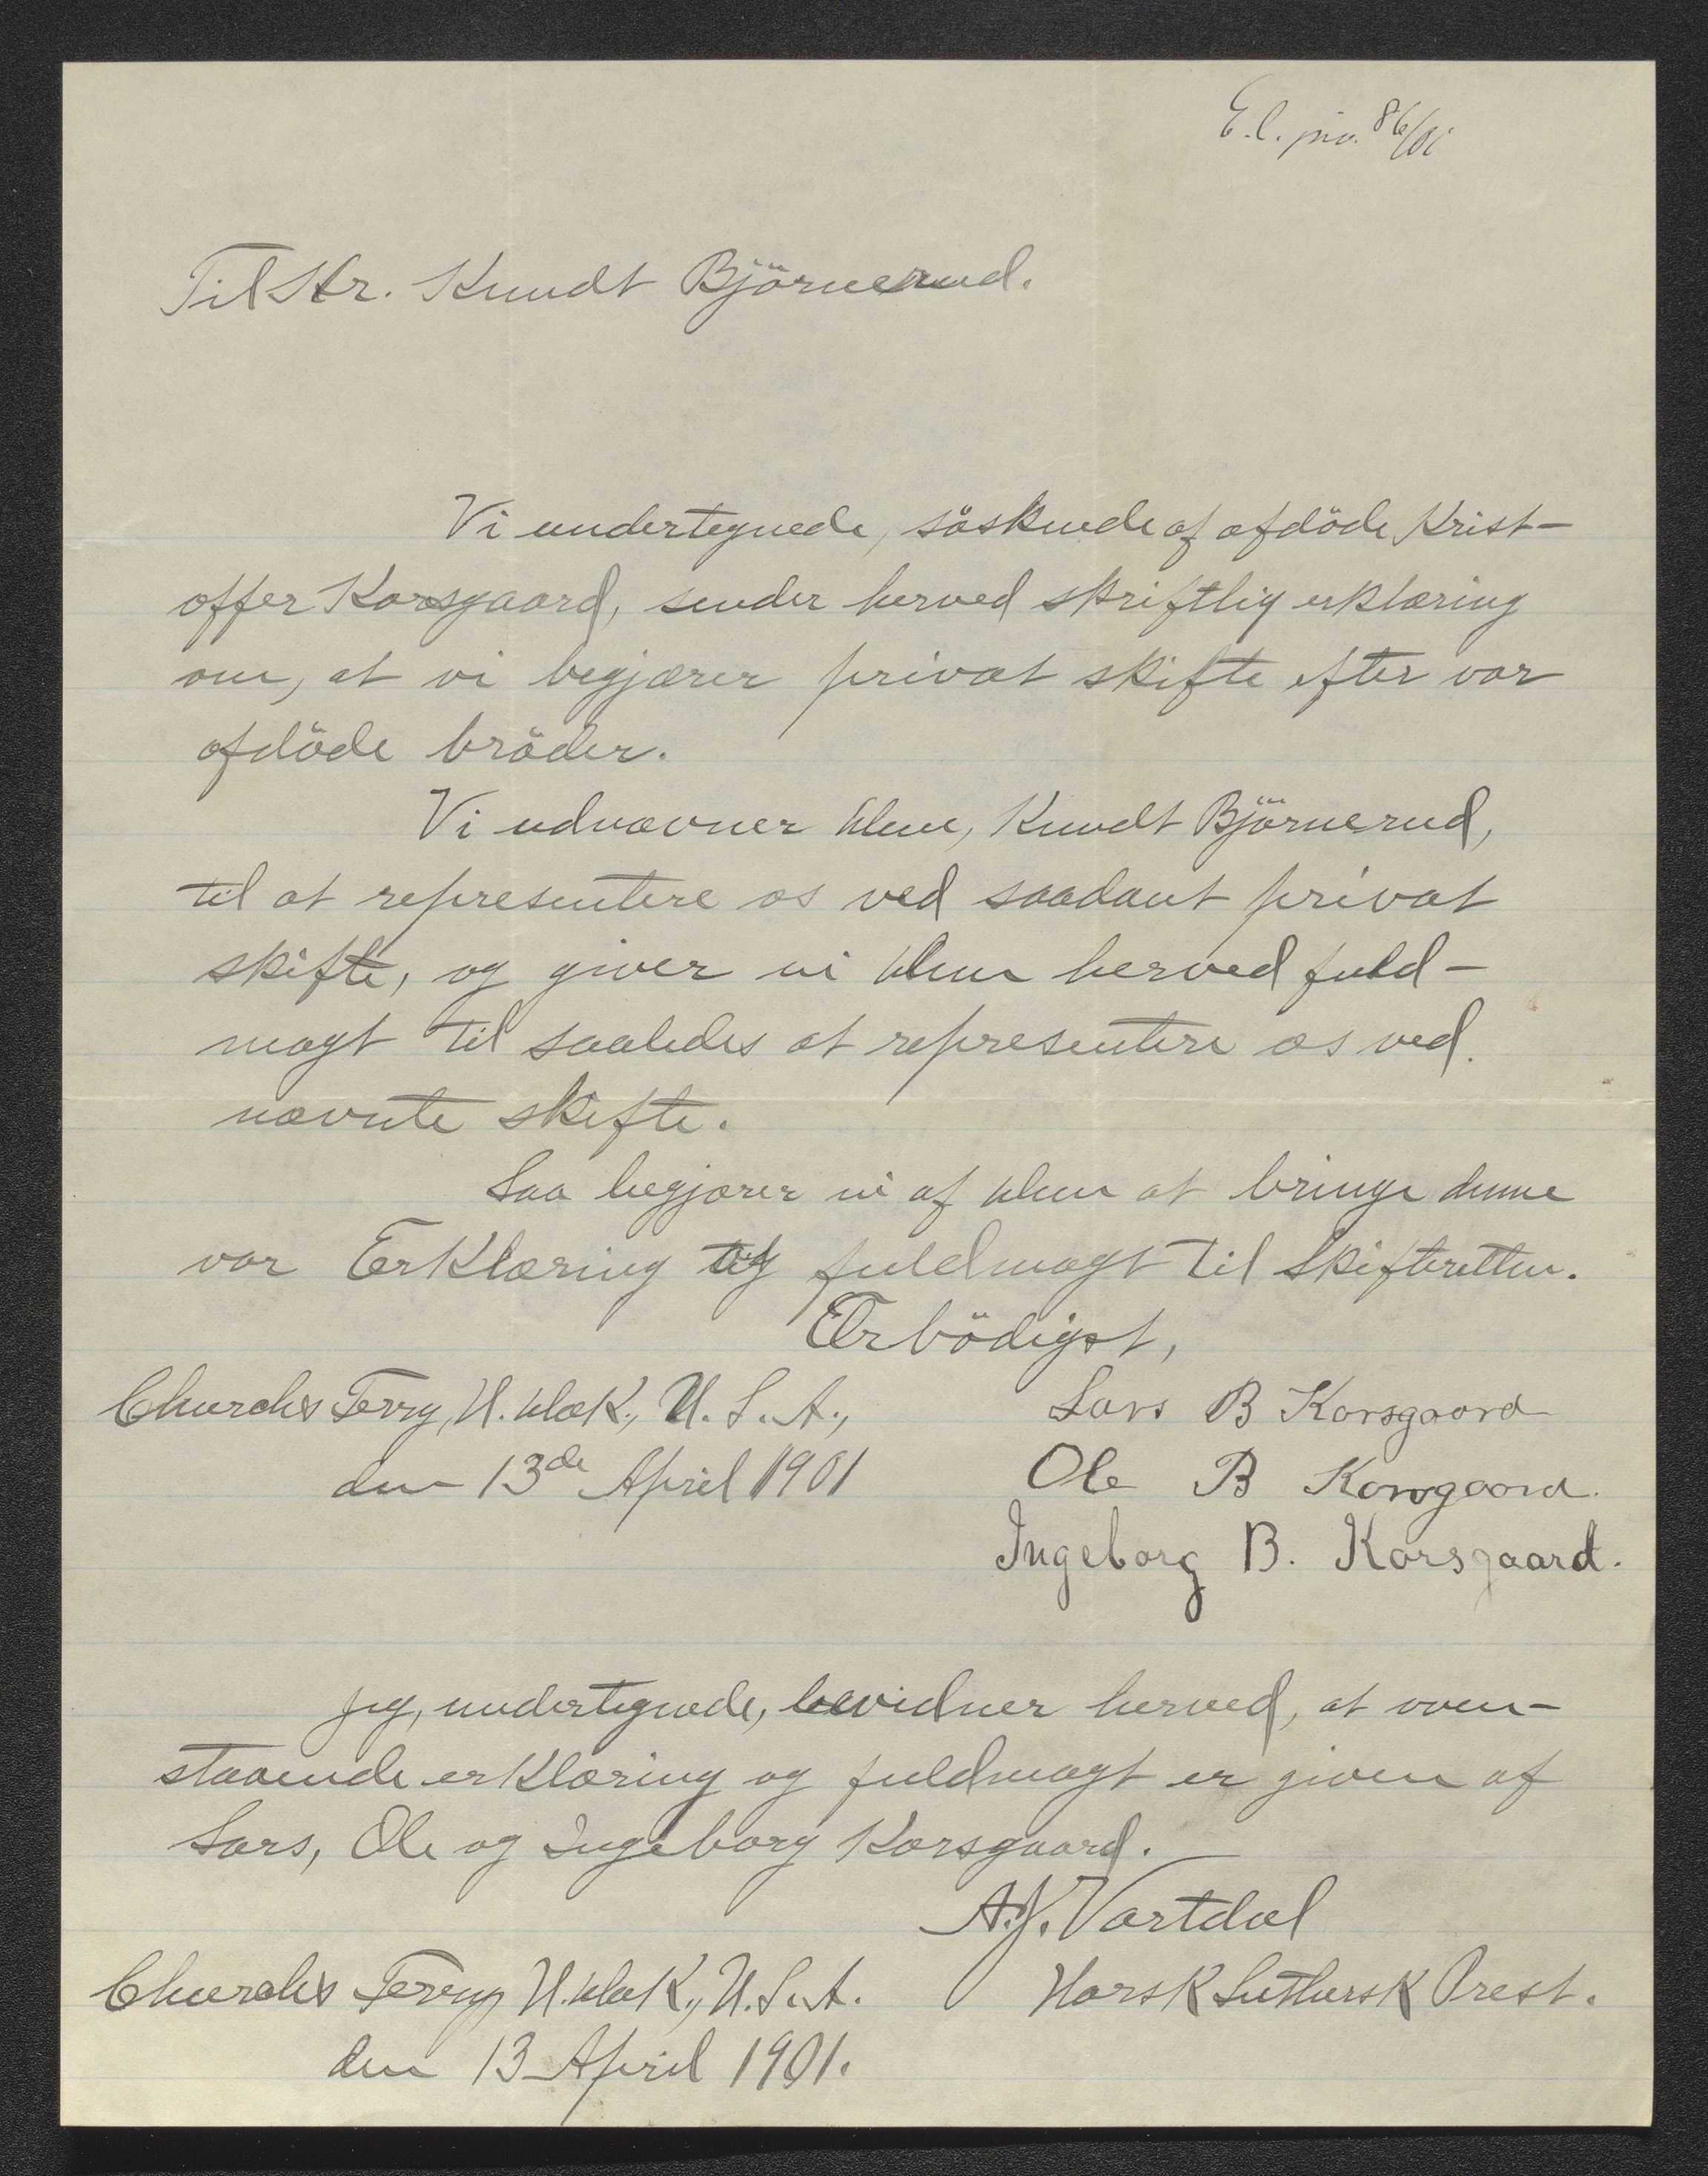 E. l. jno. 86/01
Til Hr. Knudt Björnerud.
Vi undertegnede, söskende af afdöde Krist-
offer Korsgaard, sender herved skriftlig erklæring
om, at vi begjærer privat skifte efter vor
afdöde bröder.
Vi udnævner Dem, Knudt Björnerud,
til at representere os ved saadant privat
skifte, og giver vi Dem herved fuld-
magt til saaledes at representere os ved
nævnte skifte.
Saa begjærer vi af Dem at bringe denne
vor Erklæring og fuldmagt til skifteretten.
Ærbödigst,
Churchs Ferry, N. Dak., U. S. A.,
den 13de April 1901
Lars B Korsgaard
Ole B Korsgaard.
Ingeborg B. Korsgaard.
Jeg, undertegnede, bevidner herved, at oven-
staaende erklæring og fuldmagt er given af
Lars, Ole og Ingeborg Korsgaard.
A. J. Vartdal
Norsk Luthersk Prest.
Churchs Ferry, N. Dak., U. S. A.
den 13 April 1901.